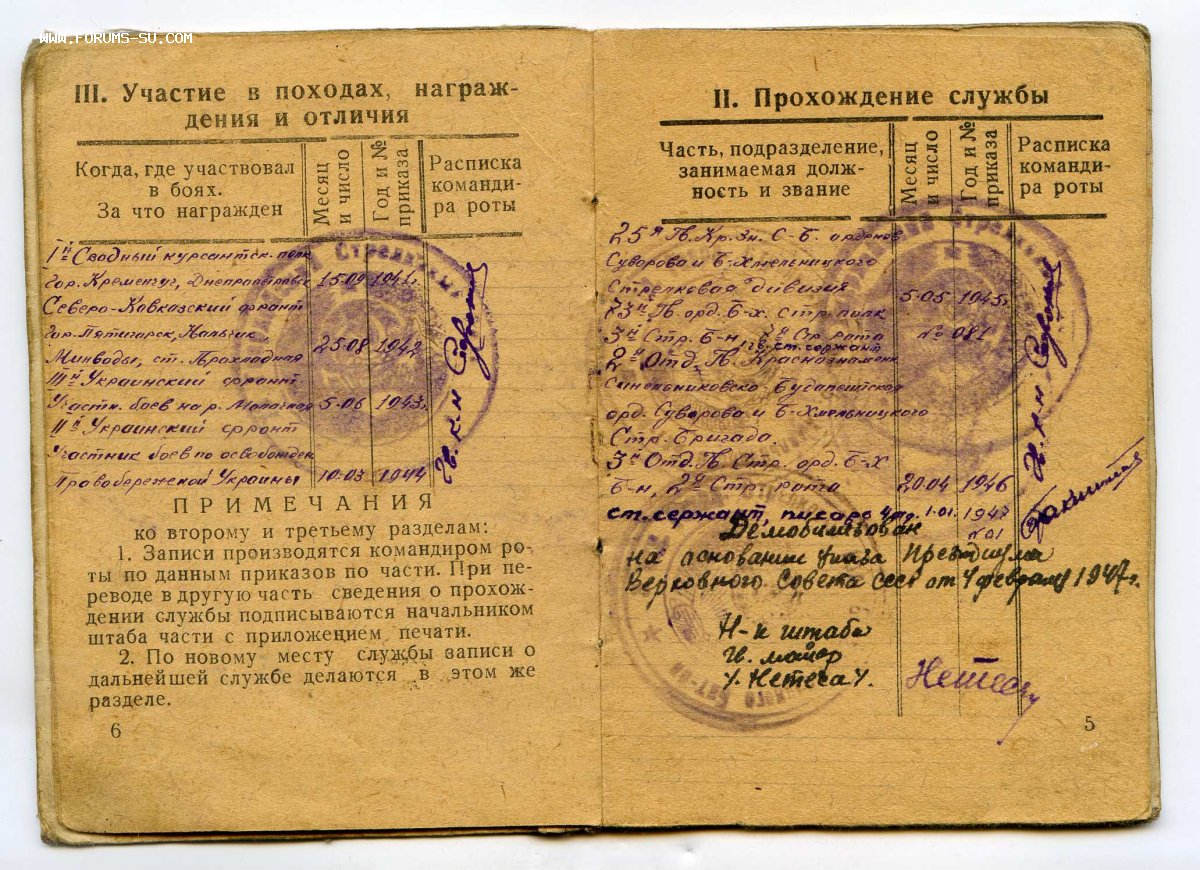 WWW.FORUMS-SU.COM
III. Участие в походах, награж-
дения и отличия
Когда, где участвовал
в боях.
За что награжден
Месяц
и число
Год и №
приказа
Расписка
команди-
ра роты
Iй Сводный курсантск. полк
гор. Кременчуг, Днепропетровск 15-09 1941г.
Северо-Кавказский фронт
гор. Пятигорск, Нальчик
Минводы, ст. Прохладная 25-08 1942
IIIй Украинский фронт
Участн. боев на р. Молочной 5-06 1943г.
IIй Украинский фронт
Участник боев по освобожден
Правобережной Украины 10-03 1944
ПРИМЕЧАНИЯ
ко второму и третьему разделам:
1. Записи производятся командиром ро-
ты по данным приказов по части. При пе-
реводе в другую часть сведения о прохож-
дении службы подписываются начальником
штаба части с приложением печати.
2. По новому месту службы записи о
дальнейшей службе делаются в этом же
разделе.
6
II. Прохождение службы
Часть, подразделение,
занимаемая долж-
ность и звание
Месяц
и число
Год и №
приказа
Расписка
команди-
ра роты
25я Гв. Кр. Зн. С-Б. орденов
Суворова и Б-Хмельницкого
Стрелковая дивизия 5-05 1945г
73й Гв. орд. Б-Х. Стр. полк № 081
3й Стр. Б-н, 7я Стр. рота
гв. ст. сержант
2я Отд. Гв. Краснознамен
Синельниковско-Будапештская
орд. Суворова и Б-Хмельницкого
Стр. Бригада.
3й Отд. Гв. Стр. орд. Б-Х
Б-н, 2я Стр. рота 20-04 1946
ст. сержант, писарь 1-01. 1947
№01
Демобилизован
на основании указа Президиума
Верховного Совета СССР от 4 февраля 1947г.
Н-к штаба
гв. майор
Нетеса